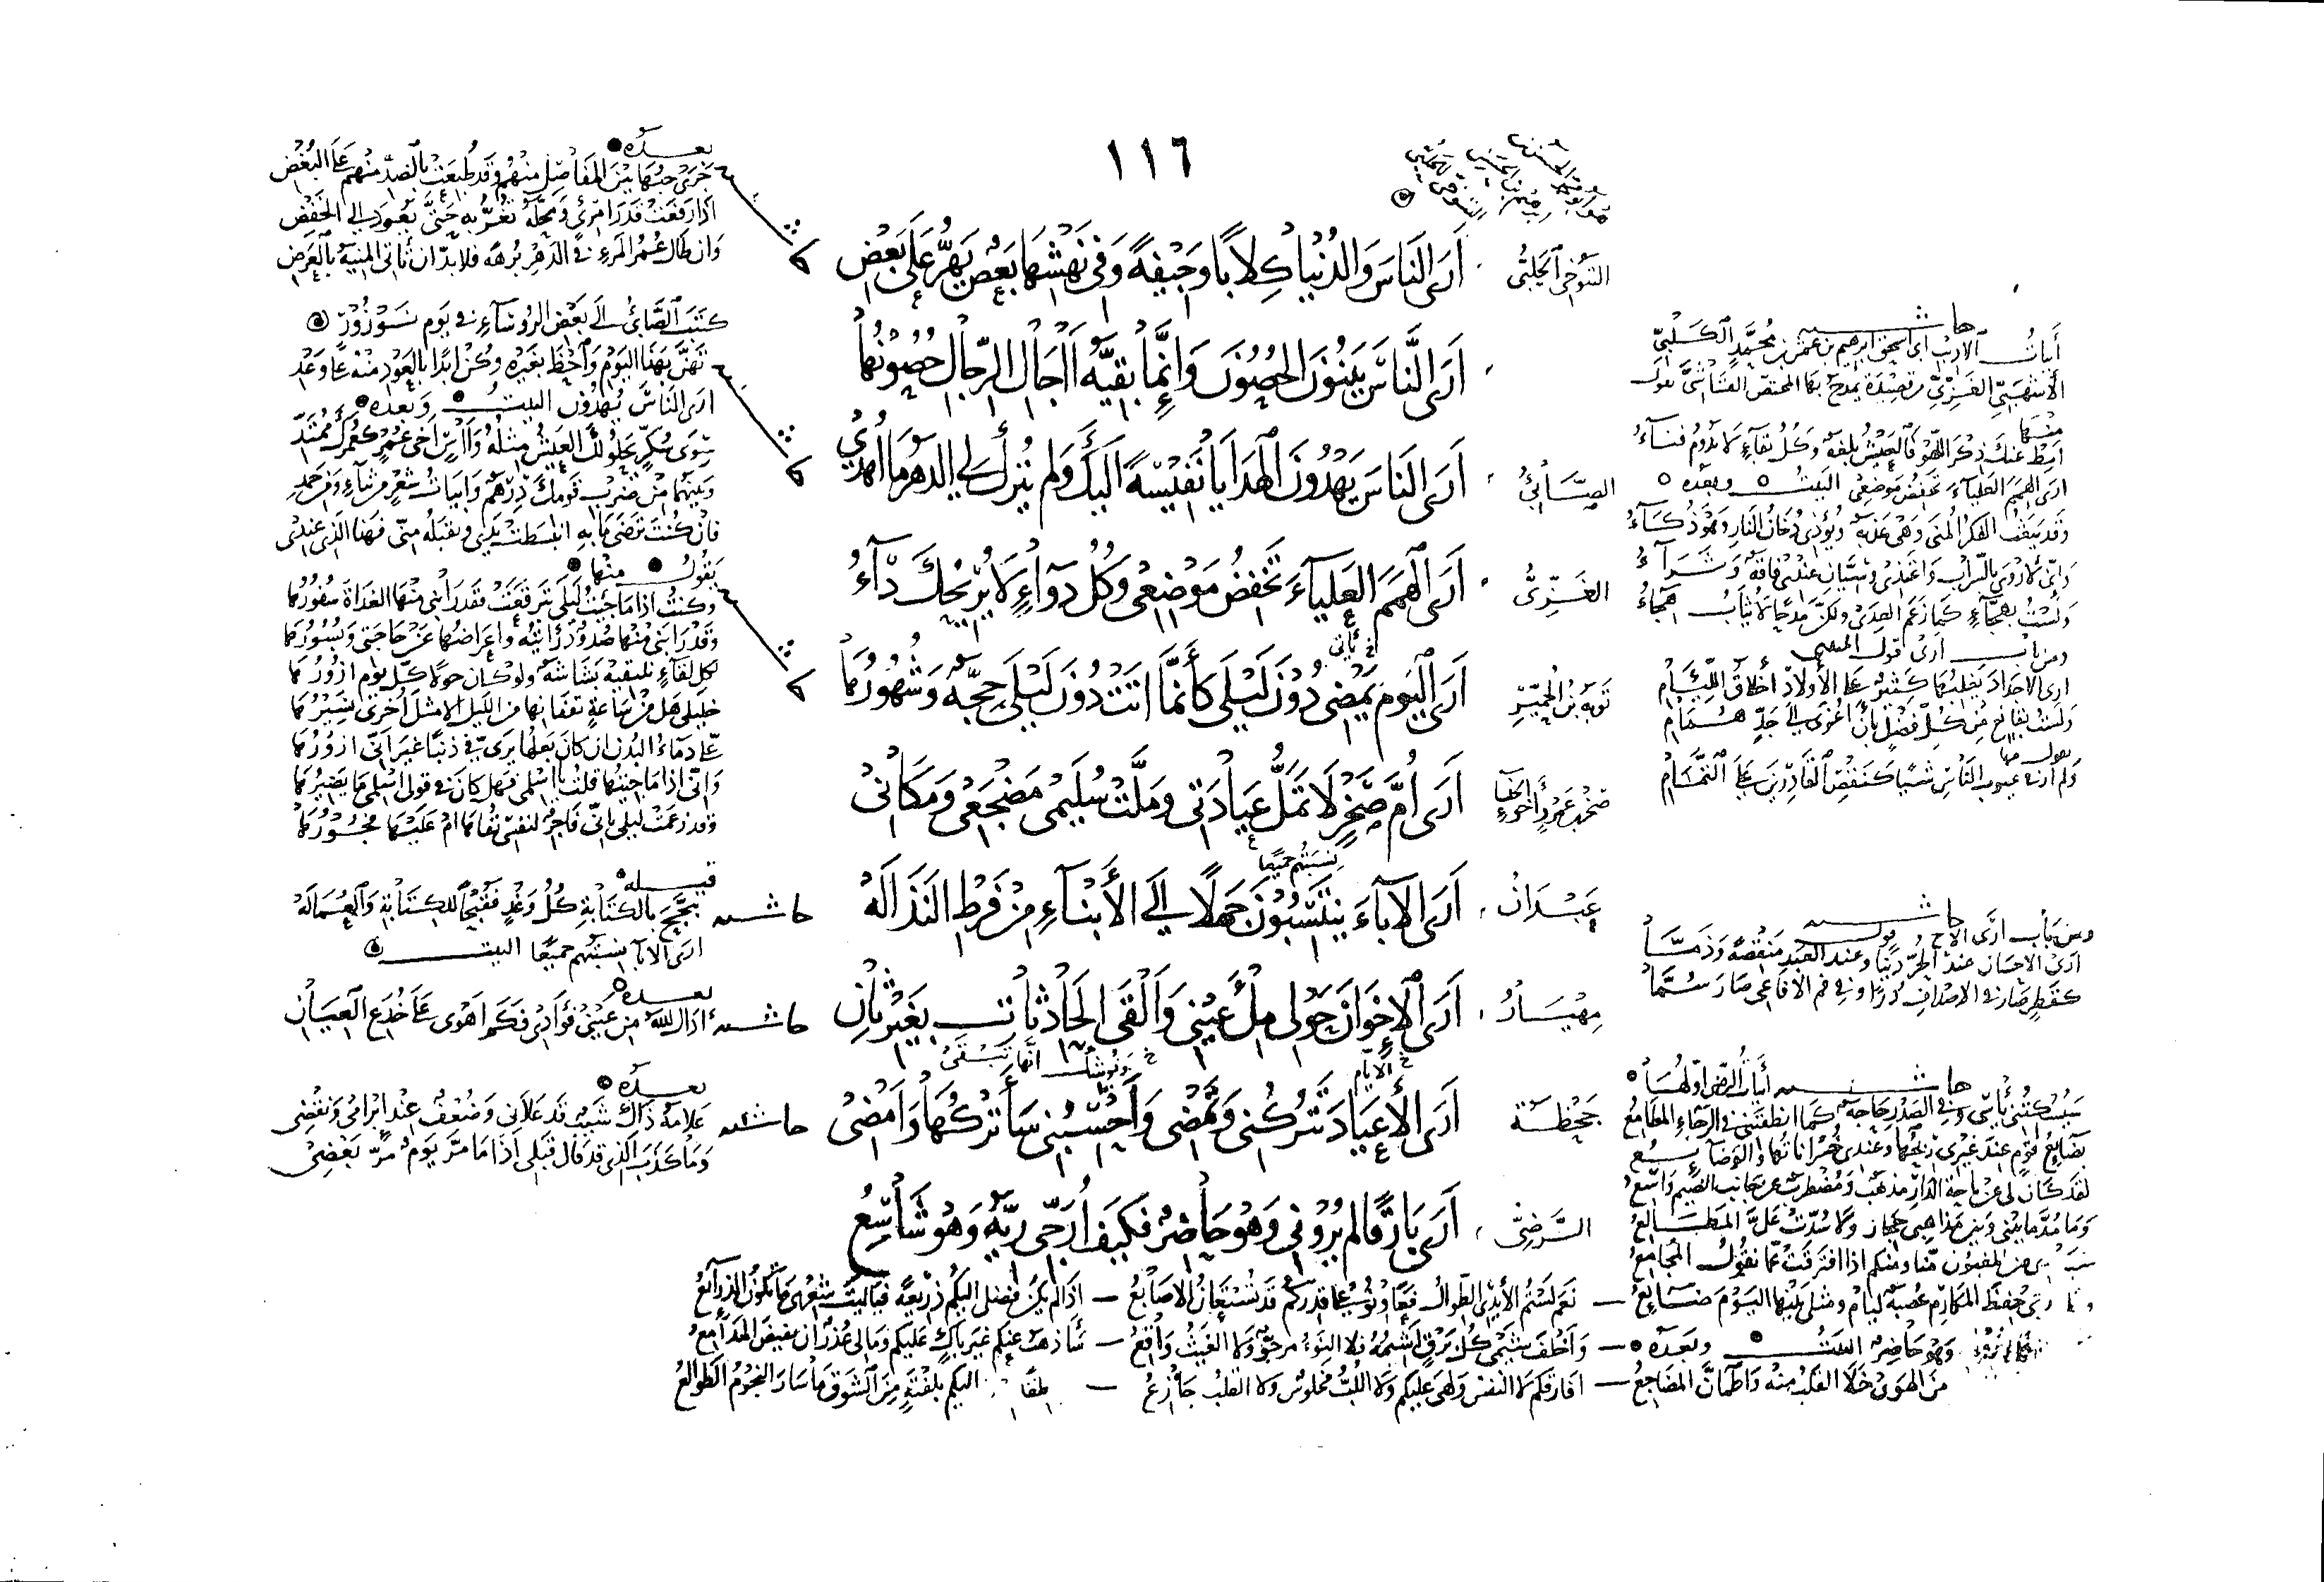 ١١٦
التنوخي الحلبي
أَرَى النَّاسَ وَالدُّنْيَا كِلَابًا وَجِيفَةً وَفِي نَهْشِهَا بَعْضٌ يَهِرُّ عَلَى بَعْضِ
أَرَى النَّاسَ يَبْنُونَ الحُصُونَ وَإِنَّمَا بَقِيَّةُ آجَالِ الرِّجَالِ حُصُونُهَا
الصابئ
أَرَى النَّاسَ يَهْدُونَ الهَدَايَا نَفِيسَةً إليكَ وَلَم يُتْرَك لي الدهرُ مَا أُهْدِي
الغزي
أَرَى الهِمَمَ العَلْيَاءَ تَخْفِضُ مَوْضِعِي وَكُلُّ دَوَاءٍ لَا يُرِيْحُكَ دَاءُ
توبة بن الحمير
أَرَى اليَومَ يَمْضِي دُوْنَ لَيْلَى كَأَنَّمَا أتَتْ دُوْنَ لَيْلَى حِجَّةٌ وَشُهُورُهَا
صخر بن عمرو أخو الخنساء
أَرَى أُمَّ صَخْرٍ لَا تَمَلُّ عِيَادَتِي وَمَلَّتْ سُلَيْمَى مَضْجَعِي وَمَكَانِي
نسبتهم جميعا
عبدان
أَرَى الآبَاءَ يَنْتَسِبُونَ جَهْلًا إلَى الأَبْنَاءِ مِنْ فَرْطِ النَّذَالَهْ
مهيار
أَرَى الإِخْوَانَ حَوْلِي مِلْءَ عَيْنِي وَأَلْقَى الحَادِثَاتِ بِغَيْرِ ثَانِ
الأيام
جحظة
أَرَى الأَعْيَادَ تَتْرُكُنِي وَتَمْضِي وَأَحْسِبُنِي سَأَتْرُكُهَا وَأَمْضِي
الرضي
أَرَى بَارِقًا لم يُرْوِنِي وَهُوَ حَاضِرٌ فَكَيْفَ أُرَجِّي رِيَّهُ وَهُوَ شَاسِعُ
بعده
جَرَى حُبُّهَا بَيْنَ المَفَاصِلِ مِنْهُم وَقَد طُبِعَتْ بِالصَّدِّ مِنْهُم عَلَى البُغْضِ
إذا رفعت قدر امرئ ومحله تغر به حتى يعود إلى الخفض
وان طال عمر المرء في الدهر برهة فلا بد ان تأتي المنية بالعرض
كتب الصابئ إلى بعض الرؤساء في يوم نوروز
تهن بهذا اليوم واحظ بغيره وكن ابدا بالعود منه على وعد
ارى الناس يهدون البيت وبعده
سوى سكر يحلو لك العيش مثله وآس أخي عمر كعمرك ممتد
وبينهما من ضرب قومك درهم وابيات شعر من ثناء ومن حمد
فان كنت ترضى ما به انبسطت يدي وتقبله مني فهذا الذي عندي
يقول منها
وكنت اذا ما جئت ليلى تبرقعت فقد رابني منها الغداة سفورها
وقد رابني منها صدود رأيته وإعراضها عن حاجتي وبسورها
لكل لقاء نلتقيه بشاشة ولو كان حولا كل يوم ازورها
خليلي هل من ساعة تقفانها من الليل الا مثل اخرى نسيرها
علي دماء البدن ان كان بعلها يرى لي ذنبا غير اني ازورها
واني اذا ما جئتها قلت يا اسلمي فهل كان في قولي اسلمي ما يضيرها
وقد زعمت ليلى باني فاجر لنفسي تقاها ام عليها فجورها
قبله
تبجح بالكتابة كل وغد فقبحا للكتابة والعماله
ارى الآبا نسبتهم جميعا البيت
حاشية
بعده
أدال الله من عيني فؤادي فكم اهوى على خدع العيان
حاشية
بعده
علامة ذاك شيب قد علاني وضعف عند ابرامي ونقضي
وما كذب الذي قد قال قبلي اذا ما مر يوم مر بعضي
حاشية
حاشية
أبيات الاديب ابي اسحق ابرهيم بن عثمن بن محمد الكلبي
الأشهبي الغزي من قصيدة يمدح بها يقول
منها
امط عنك ذكر اللهو فالعيش بلغة وكل بقاء لا يدوم فناء
ارى الهمم العلياء تخفض موضعي البيت وبعده
ولست بهجاء كما زعم العدى ولكن مدحا لا يثاب هجاء
ومن باب ارى قول المتنبي
ارى الاجداد يغلبها كثيرا على الأولاد أخلاق اللئام
ولست بقانع من كل فضل بأن اعزى الى جد همام
يقول منها
ولم ار في عيوب الناس شيئا كنقص القادرين على التمام
حاشية
ومن باب ارى الاح قول
ارى الاحسان عند الحر دينا وعند العبد منقصة وذما
كقطر صار في الاصداف درا وفي فم الافاعي صار سما
حاشية أبيات الرضي اولها
سيسكتني يأسي وفي الصدر حاجة كما انطقتني في الرجاء المطامع
بضايع قوم عند غيري ربحها وعندي خسراناتها والوضايع
لقد كان لي عن باحة الدار مذهب ومضطرب عن جانب الضيم واسع
وما مد ما بيني وبين مذاهبي حجاز ولا سدت علي المطالع
من المغبون منا ومنكم اذا افترقت عما نقول المجامع
نعم لستم الأيدي الطوال فعاونوا على قدركم قد تستعان الاصابع
اذا لم يكن فضل اليكم ذريعة فيا ليت شعري ما تكون الذرائع
وهو حاضر البيت وبعده
سأذهب عنكم غير باك عليكم وما لي عذر ان تفيض المدامع
من الهون خلا الفكر منه واطمأن المضاجع
افارقكم لا النفس ولهى عليكم ولا اللب مخلوس ولا القلب جازع
اليكم بلفتة من الشوق ما سار النجوم الطوالع